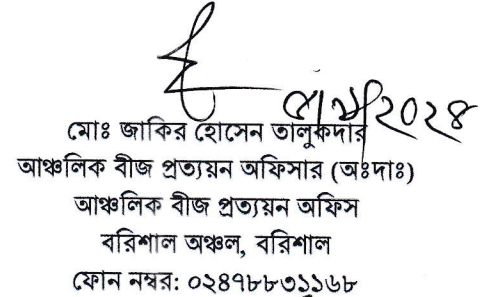 মোঃ জাকির হোসেন তালুকদার
আঞ্চলিক বীজ প্রত্যয়ন অফিসার (অঃদাঃ)
আঞ্চলিক বীজ প্রত্যয়ন অফিস
বরিশাল অঞ্চল, বরিশাল
ফোন নম্বর: ০২৪৭৮৮৩১১৬৮